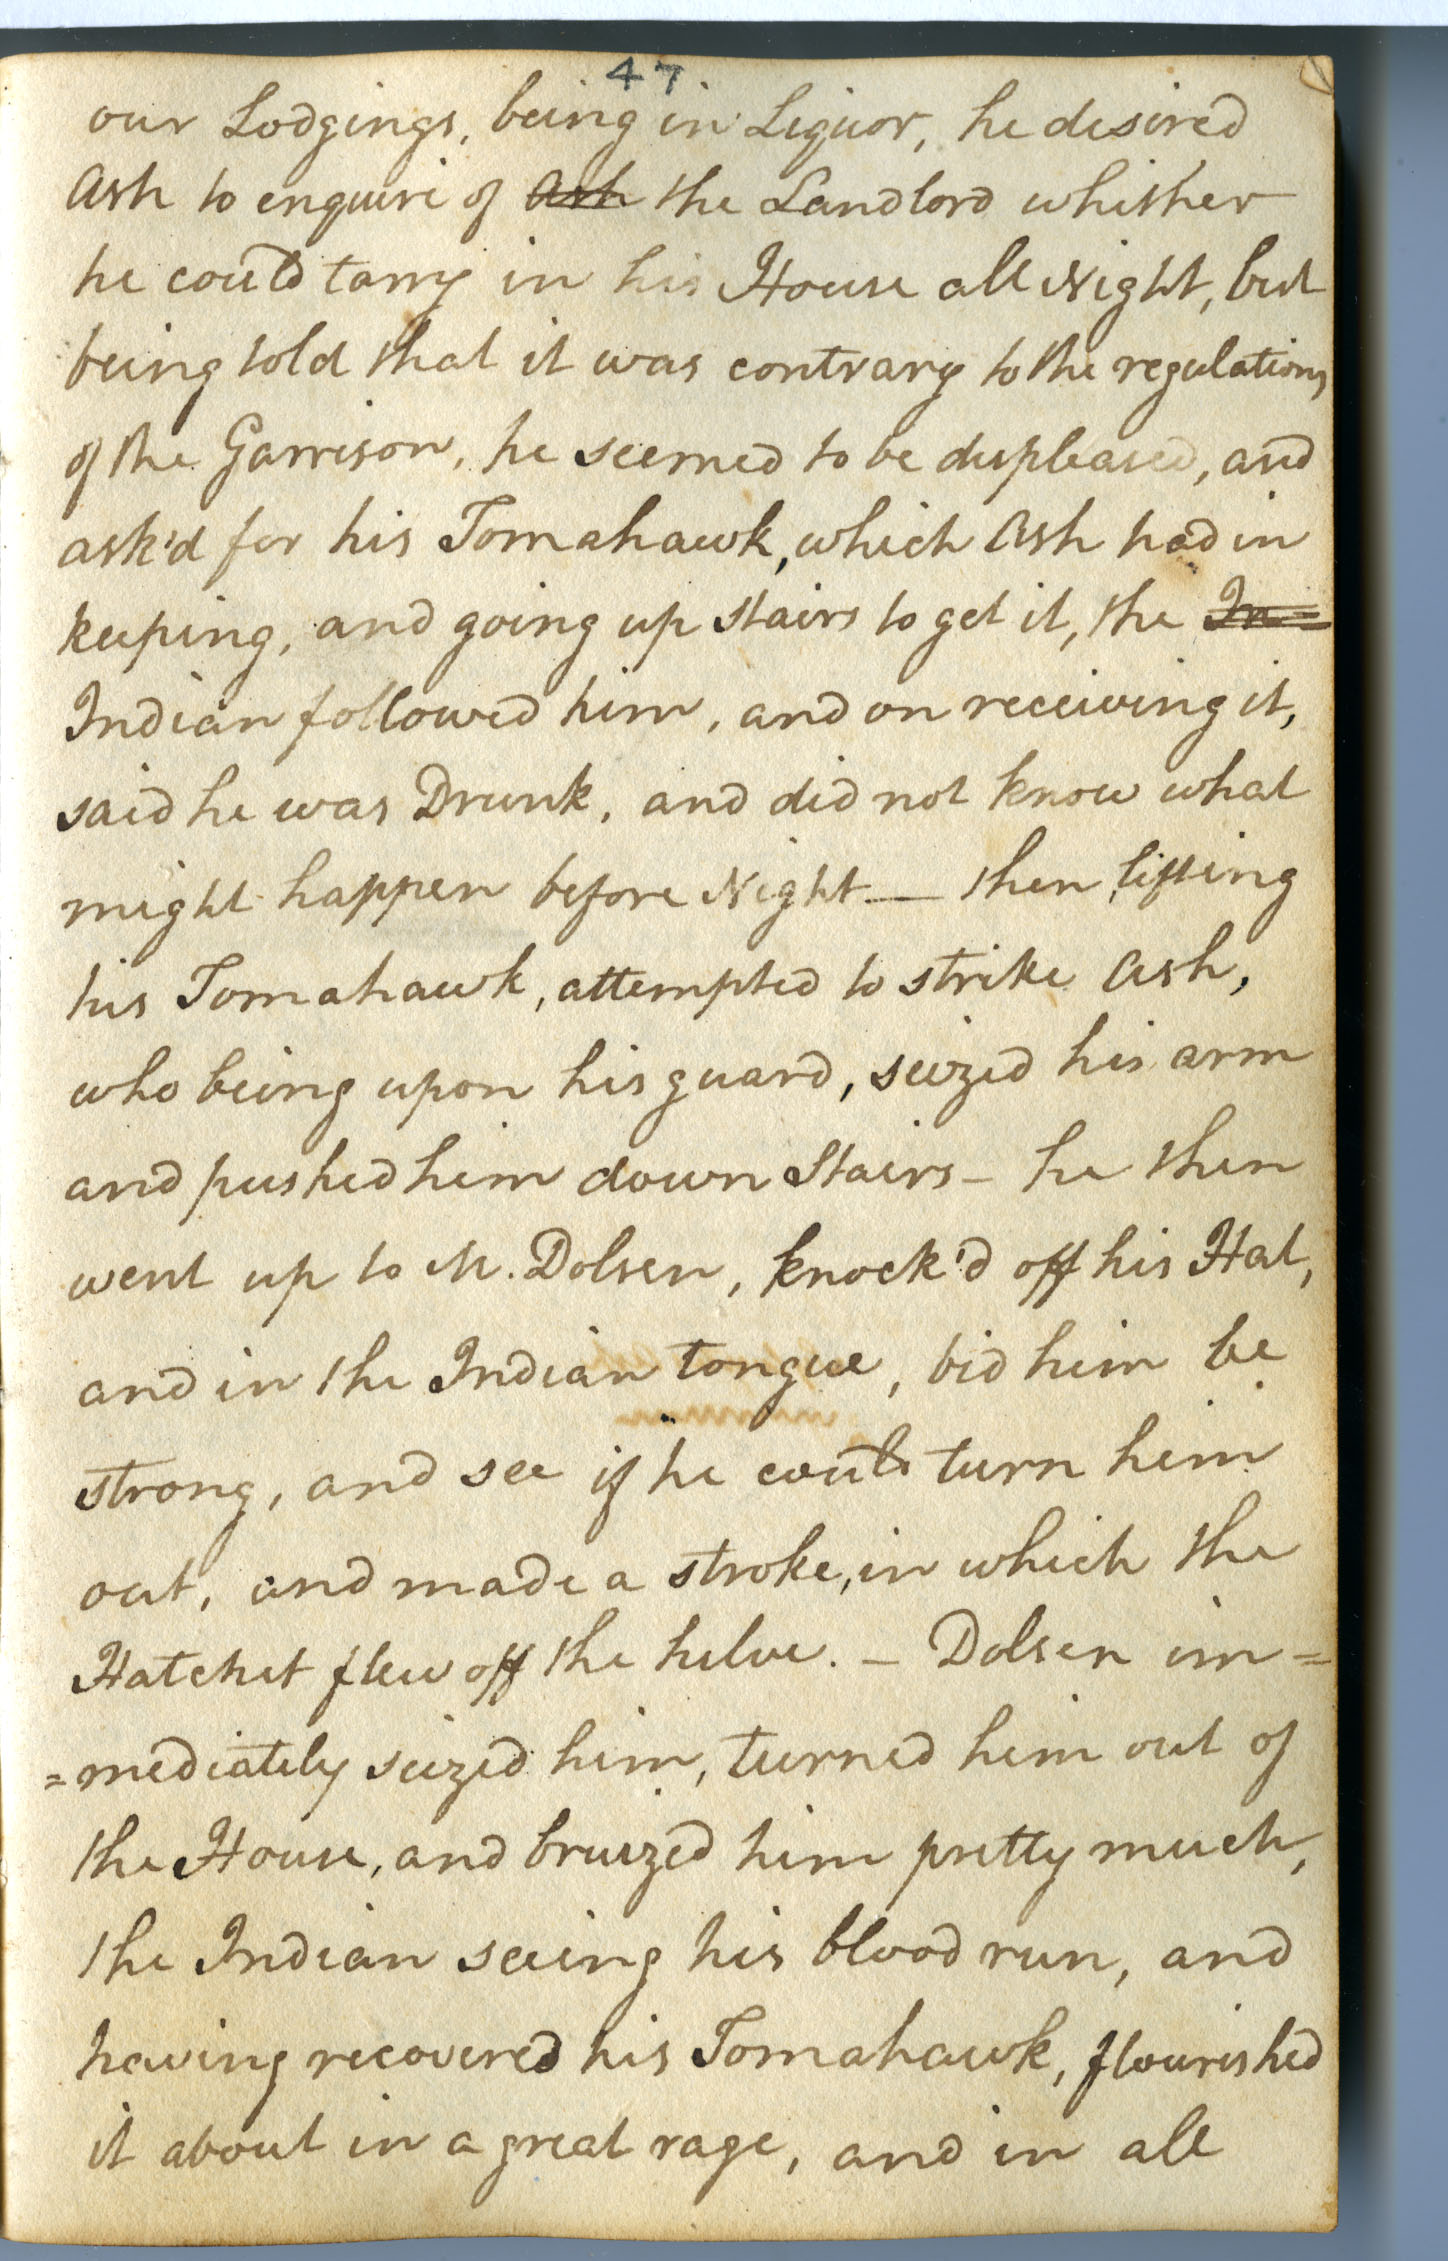 47
our Lodgings, being in Liquor, he desired
Ash to enquire of Ash the Landlord whither
he could tarry in his House all Night, but
being told that it was contrary to the regulations
of the Garrison, he seemed to be displeased, and
ask'd for his Tomahawk, which Ash had in
keeping, and going up stairs to get it, the In=
Indian followed him, and on receiving it,
said he was Drunk, and did not know what
might happen before Night — then lifting
his Tomahawk, attempted to strike Ash,
who being upon his guard, seized his arm
and pushed him down Stairs – he then
went up to M. Dolsen, knock'd off his Hat,
and in the Indian tongue, bid him be
strong, and see if he could turn him
out, and made a stroke, in which the
Hatchet flew off the helve. – Dolsen im=
=mediately seized him, turned him out of
the House, and bruized him pretty much,
the Indian seeing his blood run, and
having recovered his Tomahawk, flourished
it about in a great rage, and in all